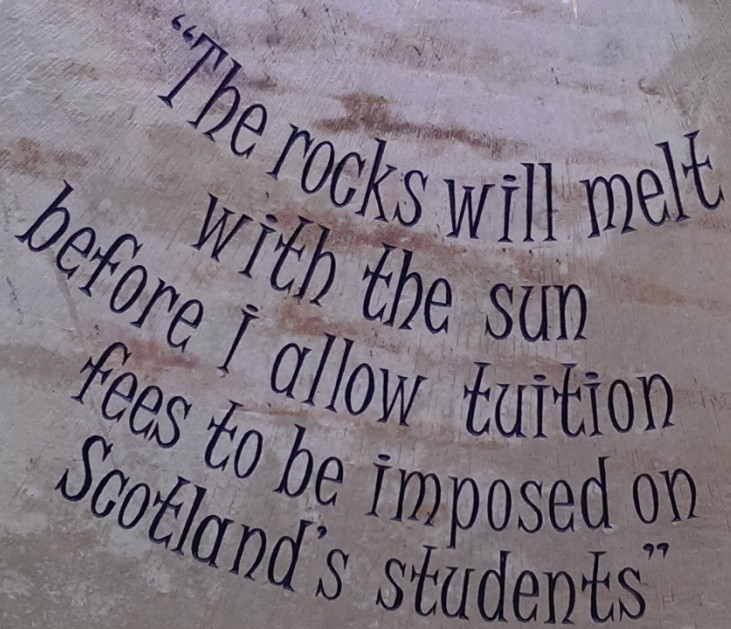 “The rocks will melt
with the sun
before i allow tuition
fees to be imposed on
Scotland's students”